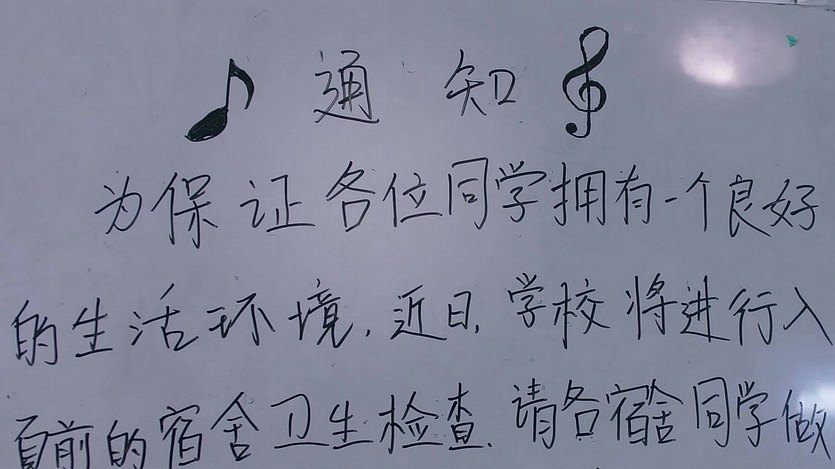 通知
为保证各位同学拥有一个良好
的生活环境,近日,学校将进行入
夏前的宿舍卫生检查.请各宿舍同学做